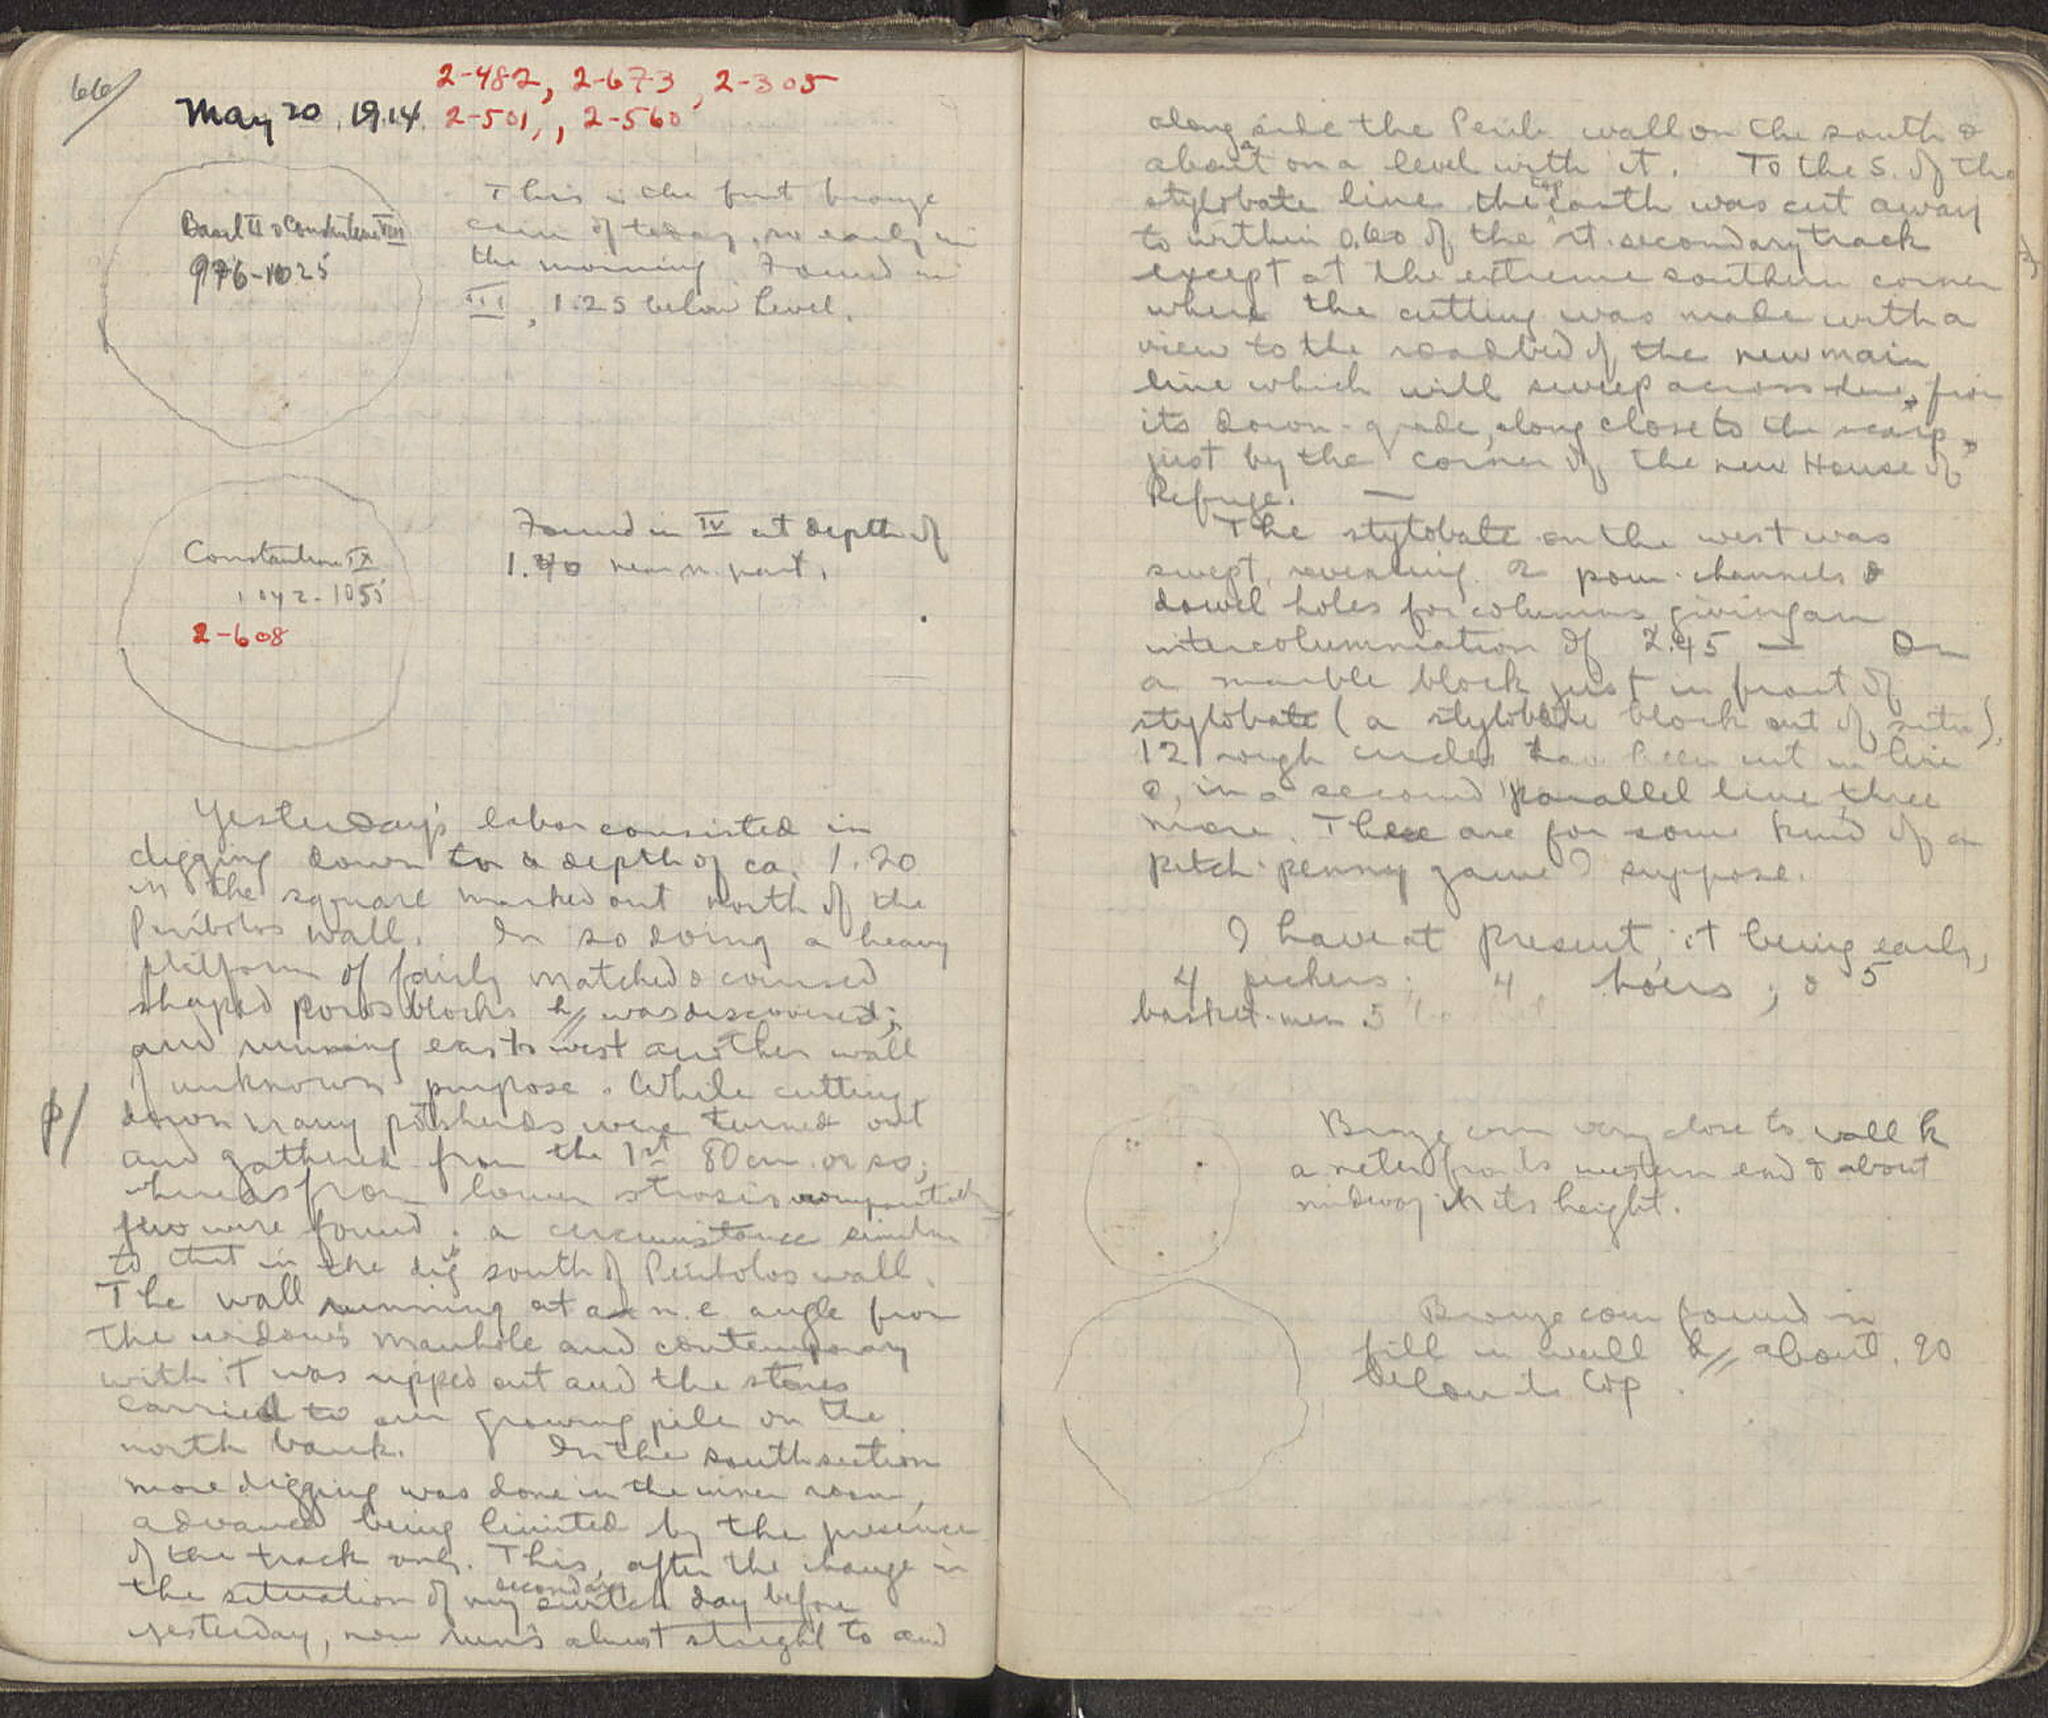 66/
2-482, 2-673, 2-305
May 20, 1914. 2-501,, 2-560
Basil II & Constantine VIII
976-1025
This is the first bronze
coin of today, so early in
the morning. Found in
III, 1.25 below level.
Constantine IX
1042-1055
2-608
Found in IV at depth of
1.40 near n. part.
Yesterday's labor consisted in
digging down to a depth of ca. 1.20
in the square marked out north of the
Peribolos wall. In so doing a heavy
platform of fairly matched & coursed
shaped poros blocks was discovered;
and running east & west another wall
of unknown purpose. While cutting
p/
down many potsherds were turned out
and gathered from the 1st 80 cm. or so;
whereas from lower strosis comparatively
few were found; a circumstance similar
to that in the dig south of Peribolos wall.
The wall running at a n.e. angle from
the widow's manhole and contemporary
with it was ripped out and the stones
carried to our growing pile on the
north bank. In the south section
more digging was done in the inner room,
advance being limited by the presence
of the track only. This, after the change in
the situation of my secondary switch day before
yesterday, now runs almost straight to and
along side the Perib. wall on the south &
about on a level with it. To the S. of the
stylobate line the top earth was cut away
to within 0.60 of the st. secondary track
except at the extreme southern corner
where the cutting was made with a
view to the roadbed of the new main
line which will sweep across here, from
its down-grade, along close to the scarp,
just by the corner of the new House of
Refuge. —
The stylobate on the west was
swept, revealing 2 pour-channels &
dowel holes for columns giving an
intercolumniation of 2.45 — On
a marble block just in front of
stylobate (a stylobate block out of situ),
12 rough circles have been cut in line
&, in a second parallel line, three
more. These are for some kind of a
pitch-penny game I suppose.
I have at present, it being early,
4 pickers; 4 hoers; & 5
basket-men 5
Bronze coin very close to wall k
a meter from its western end & about
midway in its height.
Bronze coin found in
fill in wall about .90
below its top.